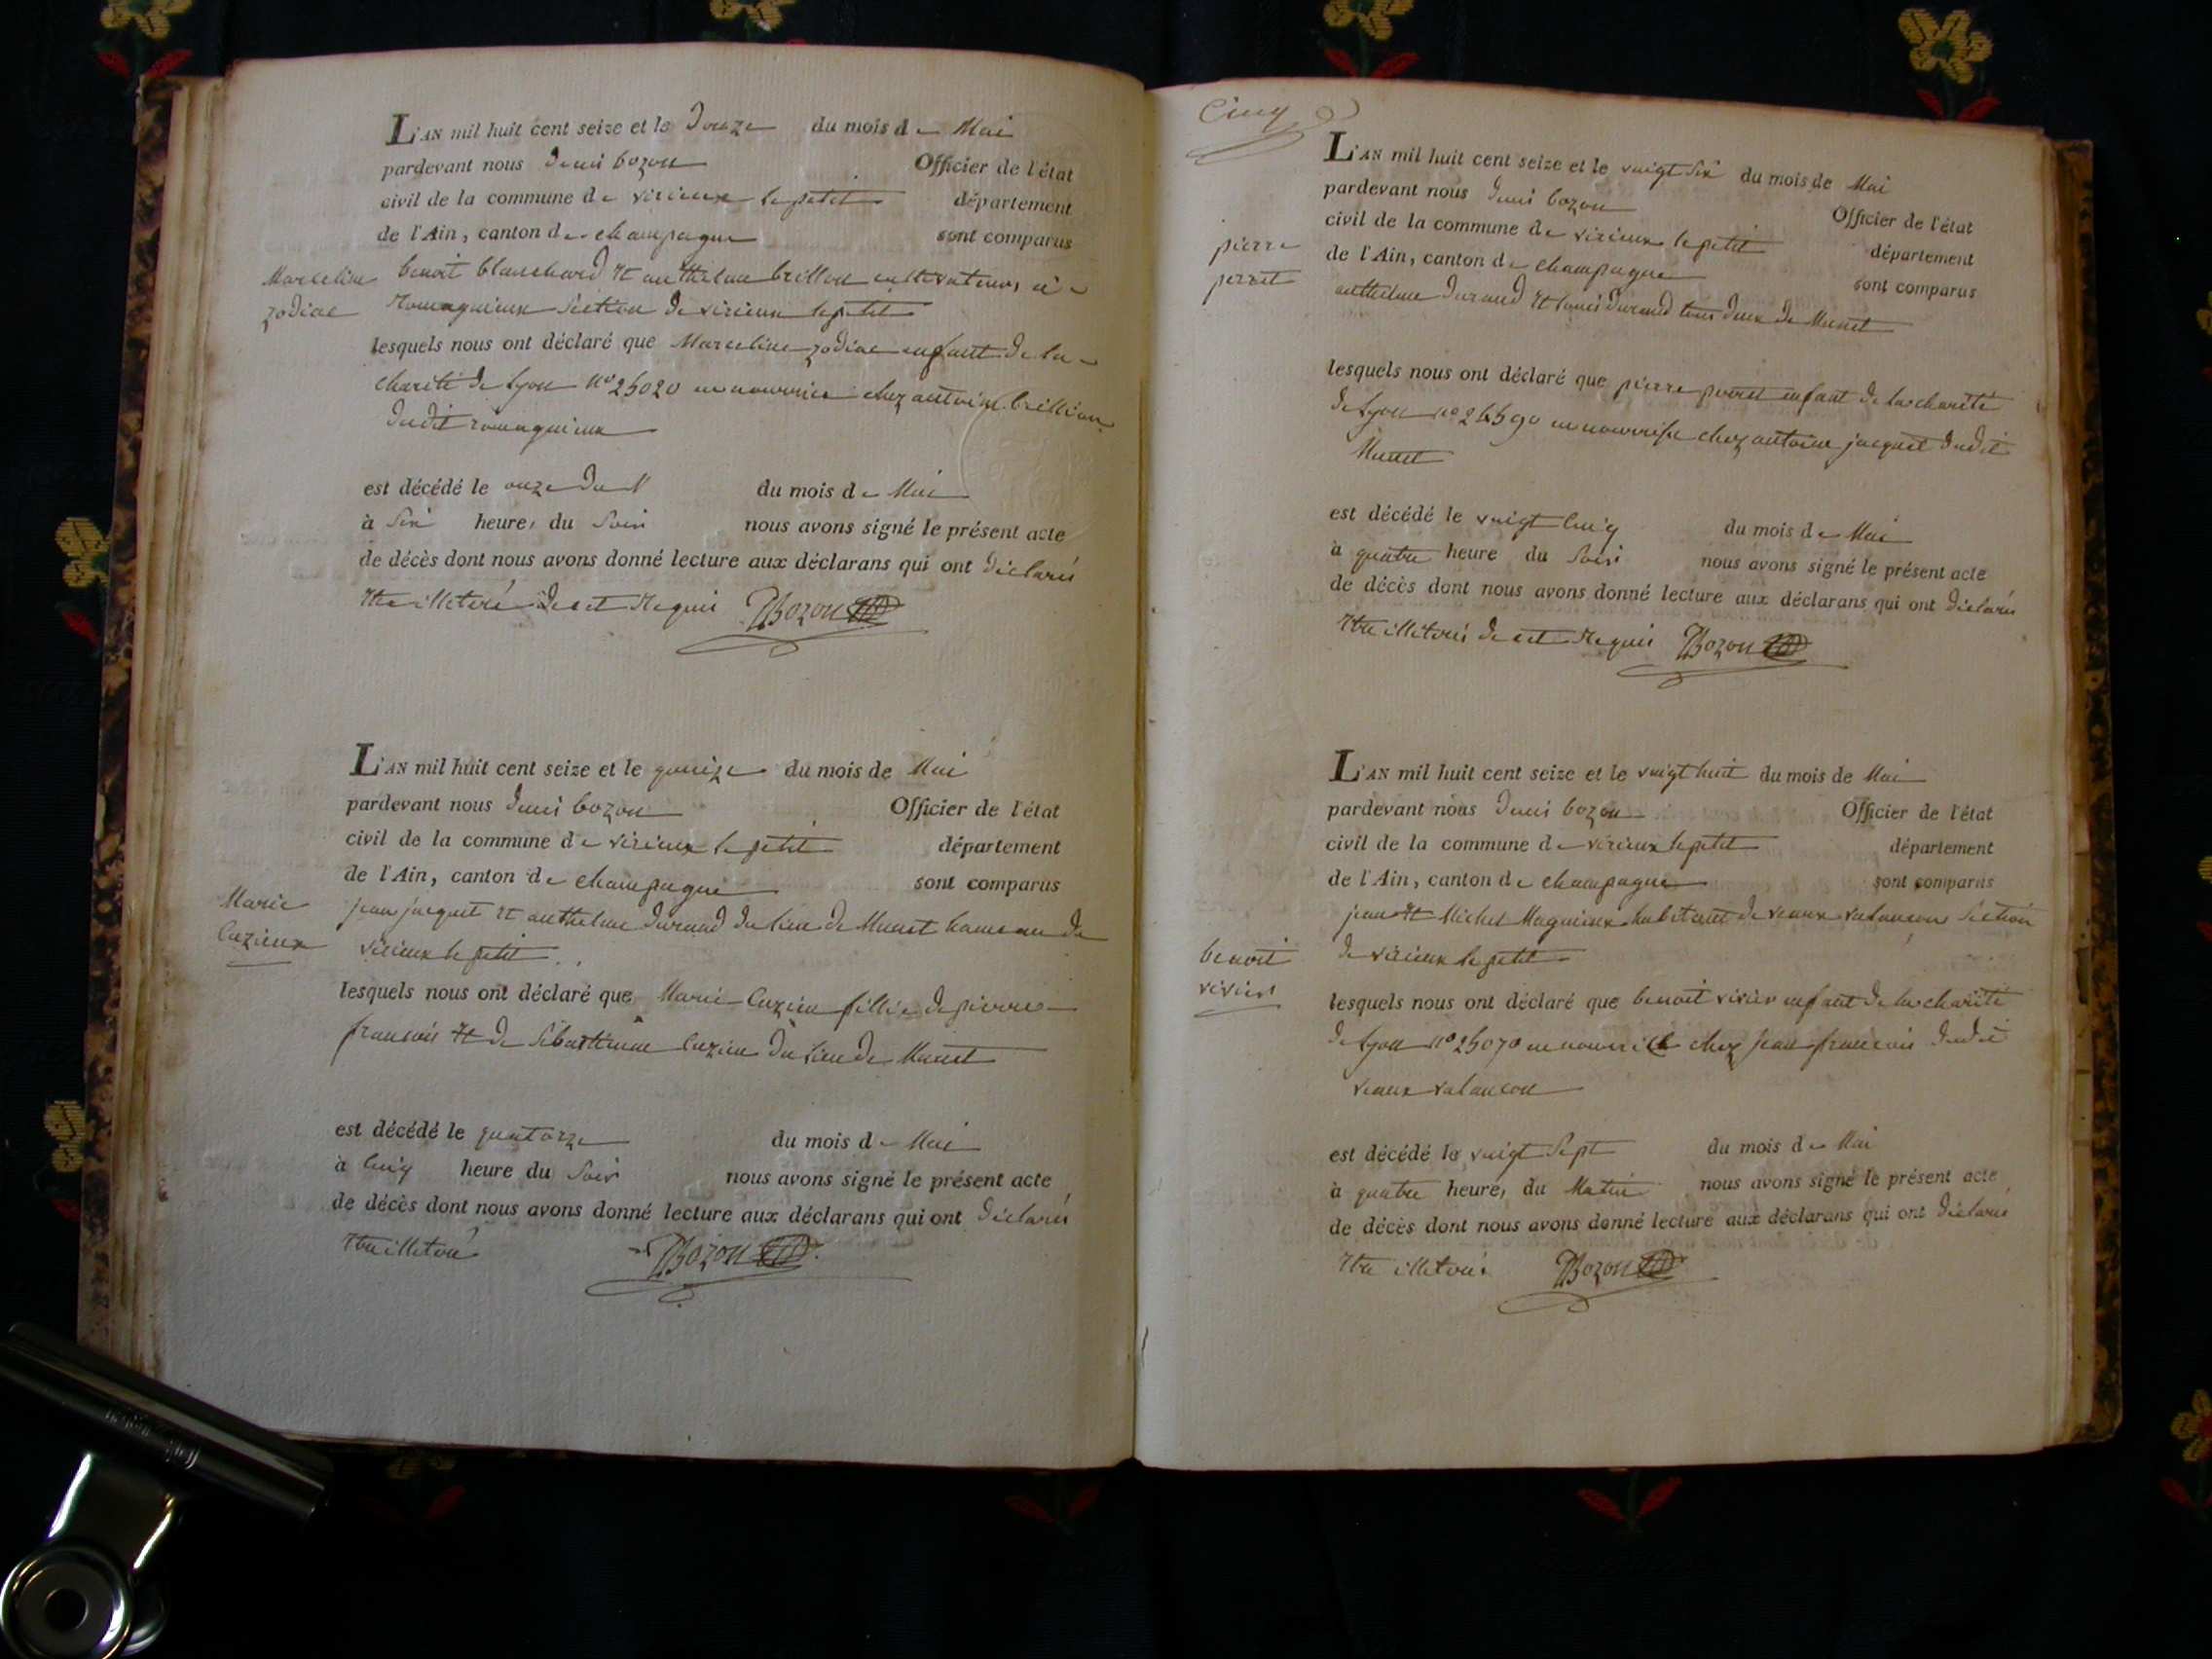 L'AN mil huit cent seize et le douze du mois de Mai
pardevant nous denis bozon Officier de l'état
civil de la commune de virieux le petit département
de l'Ain, canton de champagne sont comparus
Marceline
zodiac
benoit blanchard et anthelme brillon cultivateurs à
romagnieux section de virieux le petit
lesquels nous ont déclaré que Marceline zodiac enfant de la
charité de Lyon n° 25020 en nourrice chez antoine brillion
dudit romagnieux
est décédé le onze du du mois de Mai
à six heures du soir nous avons signé le présent acte
de décès dont nous avons donné lecture aux déclarans qui ont déclarés
etre illeterés de cet requis Bozon
L'AN mil huit cent seize et le quinze du mois de Mai
pardevant nous denis bozon Officier de l'état
civil de la commune de virieux le petit département
de l'Ain, canton de champagne sont comparus
Marie
Cuzieux
jean jacquet et anthelme durand du lieu de Munet hameau de
virieux le petit
lesquels nous ont déclaré que Marie Cuzieu fillie de pierre
francois et de sébastienne Cuzieu du lieu de Munet
est décédé le quatorze du mois de Mai
à cinq heure du soir nous avons signé le présent acte
de décès dont nous avons donné lecture aux déclarans qui ont déclarés
etre illeteré Bozon
Cinq
L'AN mil huit cent seize et le vingt six du mois de Mai
pardevant nous denis bozon Officier de l'état
civil de la commune de virieux le petit département
de l'Ain, canton de champagne sont comparus
pierre
perret
anthelme durand et louis durand tous deux de Munet
lesquels nous ont déclaré que pierre perret enfant de la charité
de Lyon n° 26590 en nourrise chez antoine jacquet dudit
Munet
est décédé le vingt cinq du mois de Mai
à quatre heure du soir nous avons signé le présent acte
de décès dont nous avons donné lecture aux déclarans qui ont déclarés
etre illéterés de cet requis Bozon
L'AN mil huit cent seize et le vingt huit du mois de Mai
pardevant nous denis bozon Officier de l'état
civil de la commune de virieux le petit département
de l'Ain, canton de champagne sont comparus
benoit
vivier
jean et Michel Magnieux habitant de vaux valancon section
de virieux le petit
lesquels nous ont déclaré que benoit vivier enfant de la charité
de Lyon n° 25070 en nourrice chez jean francois dudit
veaux valancon
est décédé le vingt sept du mois de Mai
à quatre heures du Matin nous avons signé le présent acte
de décès dont nous avons donné lecture aux déclarans qui ont déclaré
etre illeterés Bozon